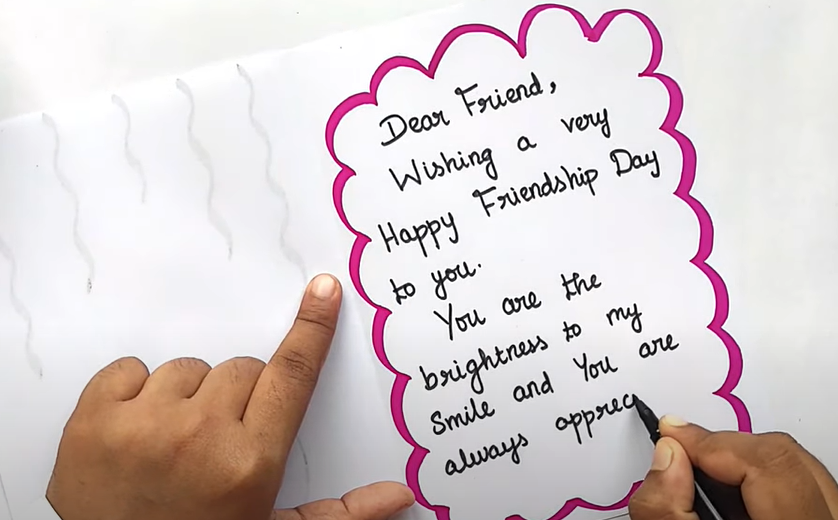 Dear Friend,
Wishing a very
Happy Friendship Day
to you.
You are the
brightness to my
Smile and You are
always apprec